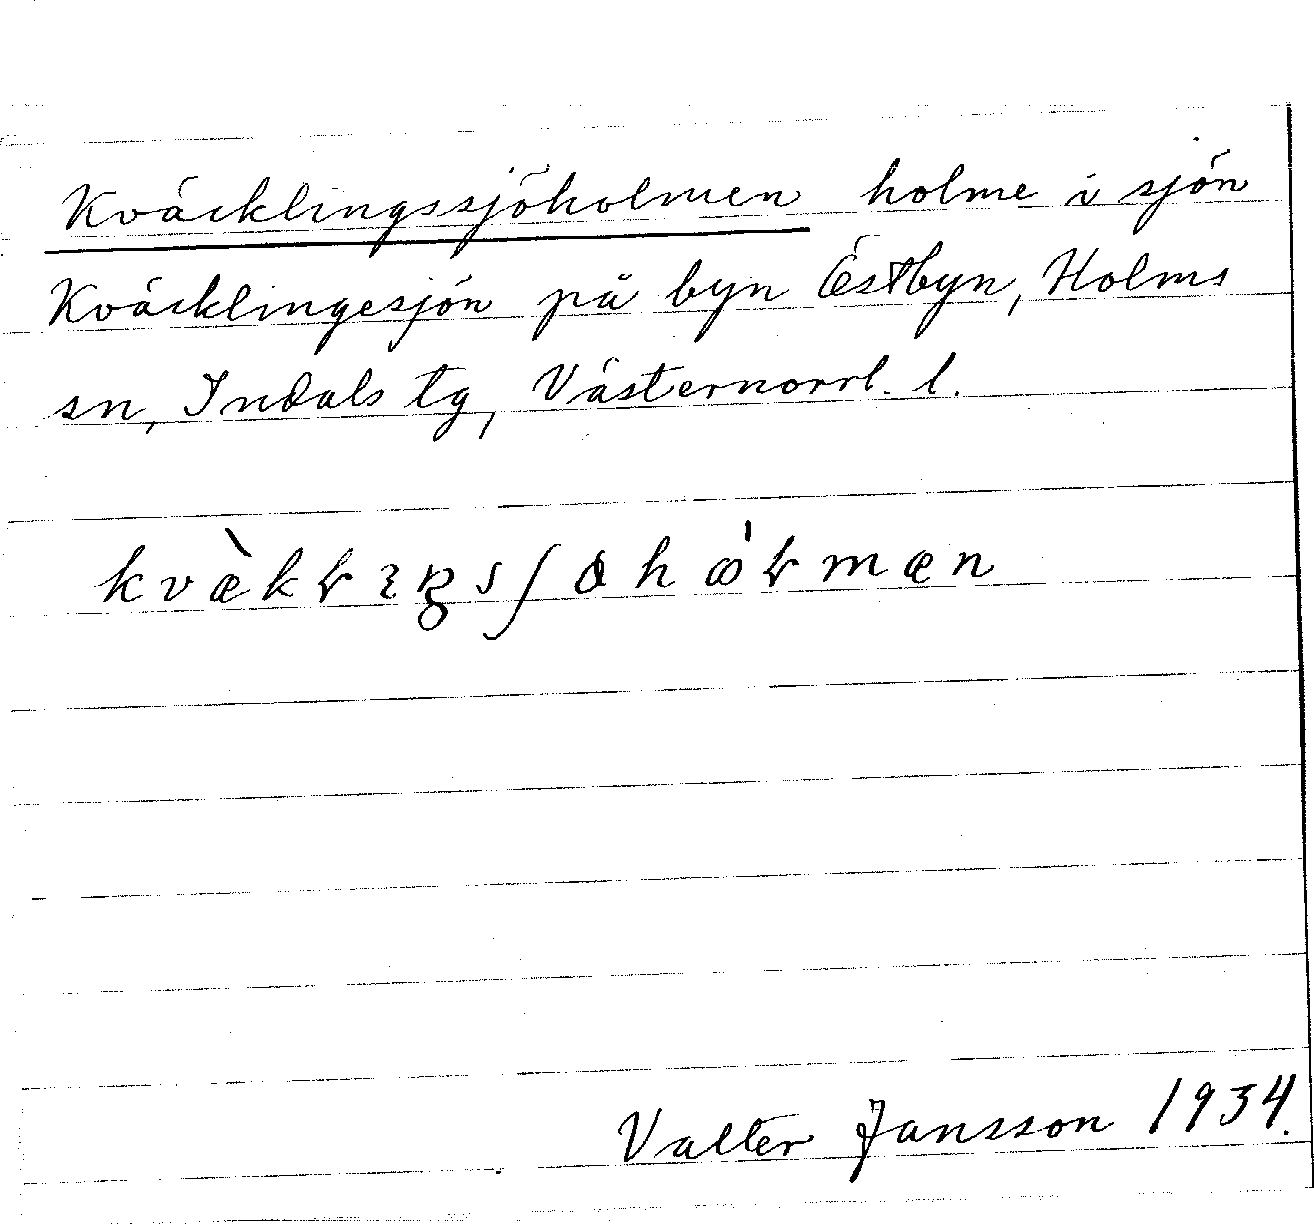 Kväcklingssjöholmen holme i sjön
Kväcklingesjön på byn Östbyn, Holms
sn, Indals tg, Västernorrl. l.
Valter Jansson 1934.